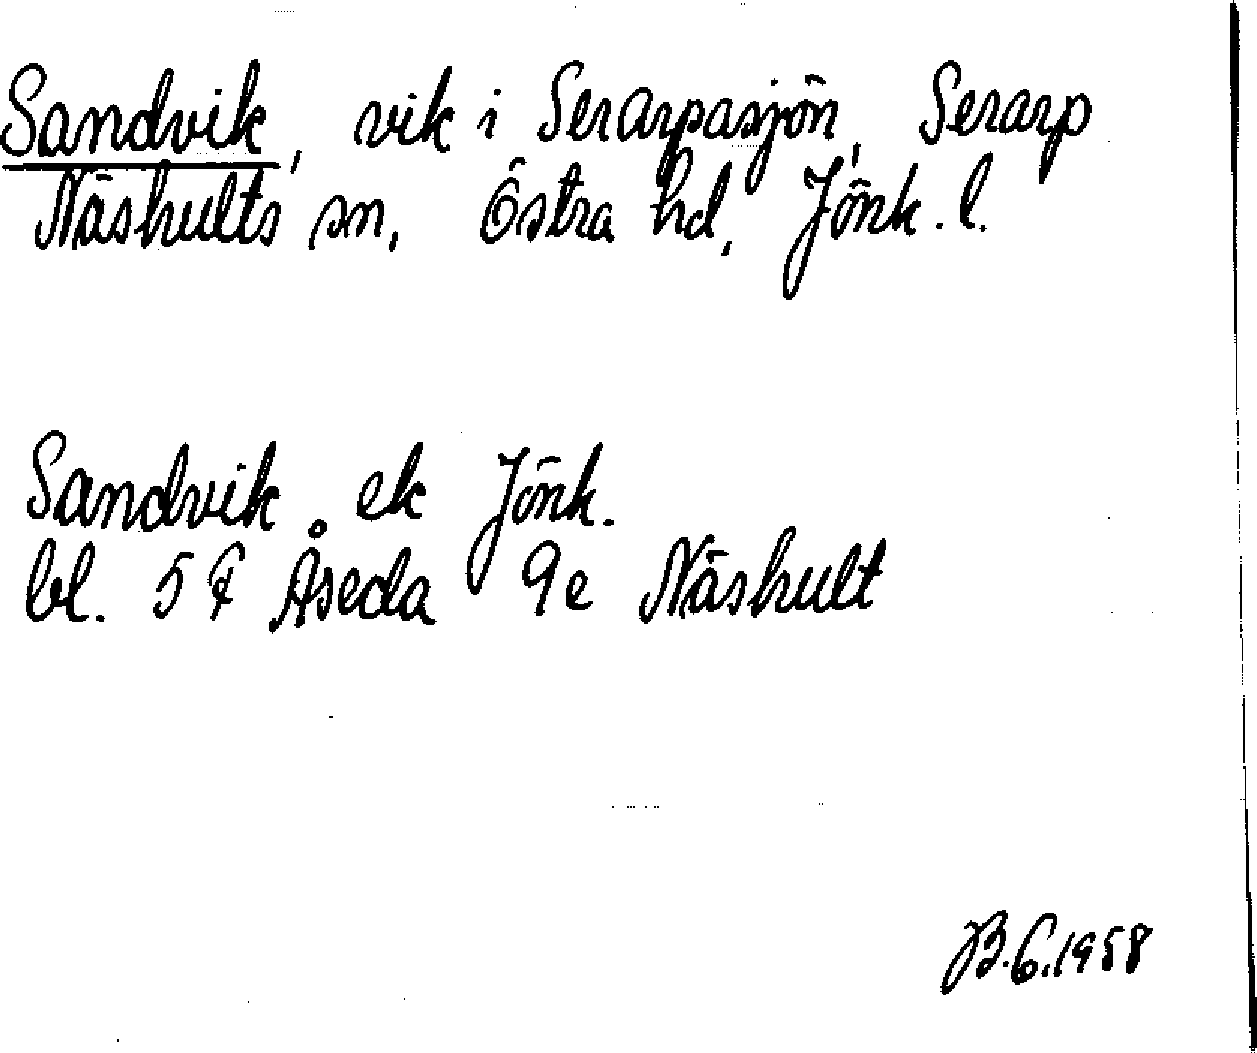 Sandvik, vik i Serarpasjön, Serarp
Näshults sn, Östra hd, Jönk. l.
Sandvik. ek Jönk.
bl. 5 F Åseda 9e Näshult
B.G.1958